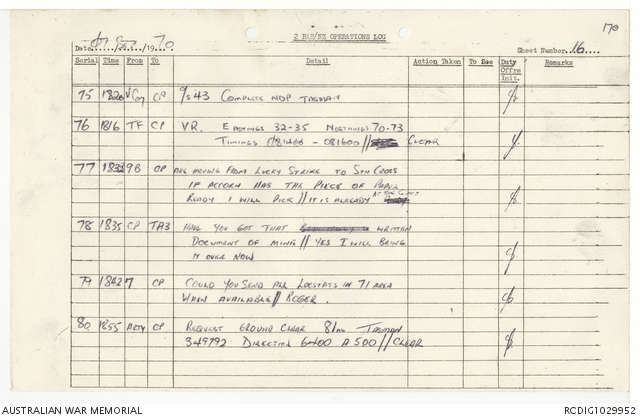 170
2 RAR/NZ OPERATIONS LOG
Date 19 70
Sheet Number 16
Serial Time From To Detail Action Taken To Dee Duty Offrs Init. Remarks
75 1820 V Coy CP C/S 43 COMPLETE NDP TASMAN
76 1816 TF CP VR. EASTINGS 32-35 NORTHINGS 70-73
TIMINGS 081400 - 081600 // CLEAR
77 1832 9B CP ARE MOVING FROM LUCKY STRIKE TO 5TH CROSS
IF ACORN HAS THE PIECE OF PAPER
READY I WILL PICK // IT IS ALREADY
78 1835 CP TA3 HAVE YOU GOT THAT WRITTEN
DOCUMENT OF MINE // YES I WILL BRING
IT OVER NOW
79 1842 7 CP COULD YOU SEND ALL LOCSTATS IN 71 AREA
WHEN AVAILABLE // ROGER.
80 1855 ARTY CP REQUEST GROUND CLEAR 81mm TASMAN
349792 DIRECTION 6400 A 500 // CLEAR
AUSTRALIAN WAR MEMORIAL
RCDIG1029952